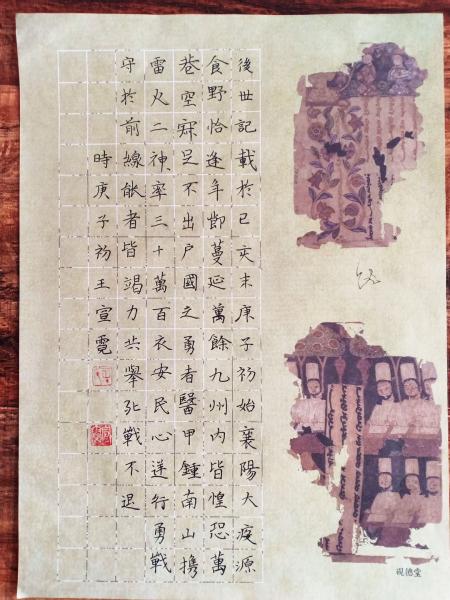 後世記載於已亥末庚子初始襄陽大疫源
食野恰逢年節蔓延萬餘九州内皆惶恐萬
巷空寂足不出户國之勇者醫甲鍾南山攜
雷火二神率三十萬百衣安民心逆行勇戰
守於前線能者皆竭力共舉死戰不退
時庚子初王宣霓